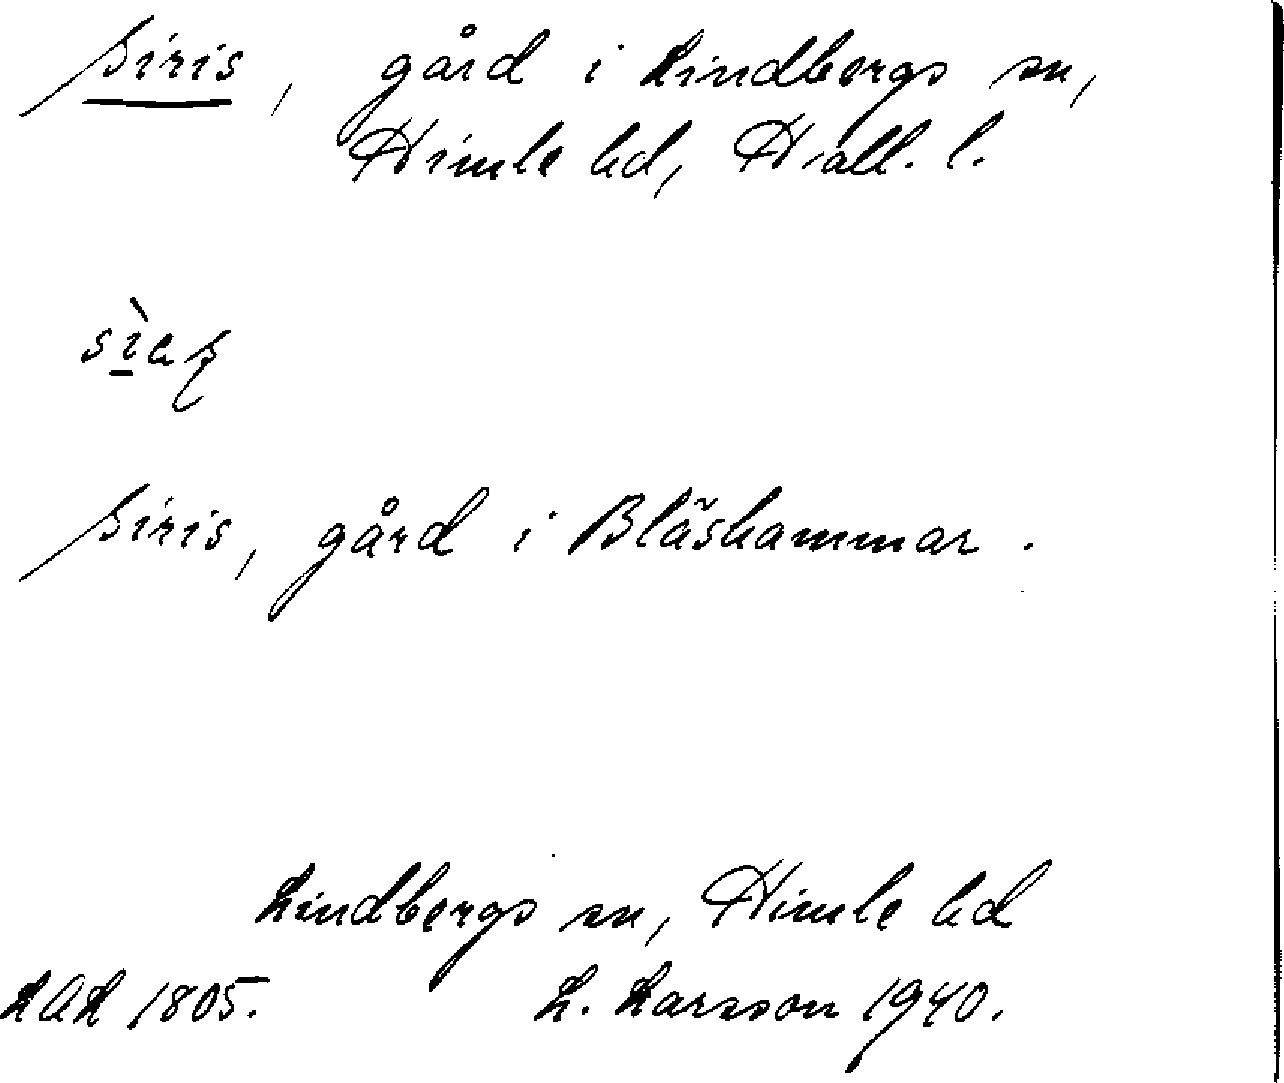 siris, gård i Lindbergs sn,
Himle hd, Hall. l.
siris, gård i Blåshammar.
Lindbergs sn, Himle hd
LAL 1805. L. Larsson 1940.